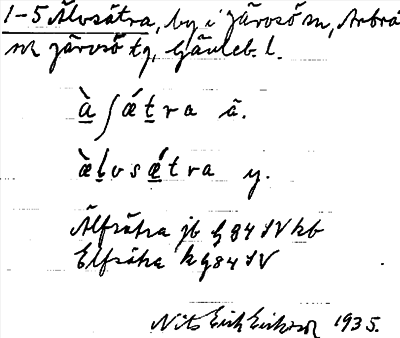 1-5 Älvsätra, by i Järvsö sn, Arbrå
och Järvsö tg, Gävleb. l.
àʃǽtra ä.
æ̀lvsǽtra y.
Älfsätra jb G 84 IV kb
Elfsätra k G 84 IV
Nils Erik Erikson 1935.